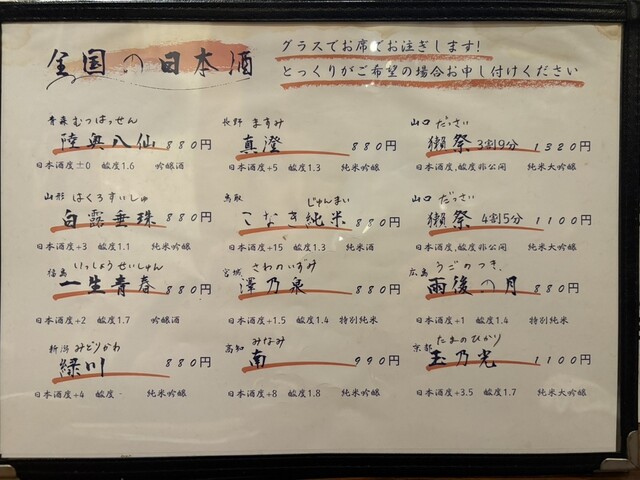 全国の日本酒
グラスでお席でお注ぎします!
とっくりがご希望の場合お申し付けください
青森 むつはっせん
陸奥八仙 880円
日本酒度±0 酸度1.6 吟醸酒
長野 ますみ
真澄 880円
日本酒度+5 酸度1.3 純米吟醸
山口 だっさい
獺祭 3割9分 1320円
日本酒度,酸度非公開 純米大吟醸
山形 はくろすいしゅ
白露垂珠 880円
日本酒度+3 酸度1.1 純米吟醸
鳥取 じゅんまい
こなき純米 880円
日本酒度+15 酸度1.3 純米酒
山口 だっさい
獺祭 4割5分 1100円
日本酒度,酸度非公開 純米大吟醸
福島 いっしょうせいしゅん
一生青春 880円
日本酒度+2 酸度1.7 吟醸酒
宮城 さわのいずみ
澤乃泉 880円
日本酒度+1.5 酸度1.4 特別純米
広島 うごのつき
雨後の月 880円
日本酒度+1 酸度1.4 特別純米
新潟 みどりかわ
緑川 880円
日本酒度+4 酸度 純米吟醸
高知 みなみ
南 990円
日本酒度+8 酸度1.8 純米吟醸
京都 たまのひかり
玉乃光 1100円
日本酒度+3.5 酸度1.7 純米大吟醸